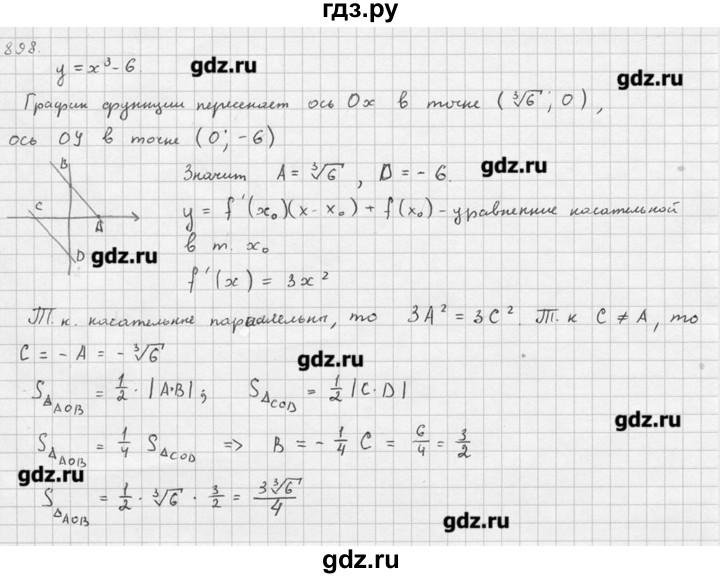 гдз.ру
898.
y = x³ - 6.
gdz.ru
gdz.ru
График функции пересекает ось Ox в точке (∛6; 0),
ось OY в точке (0; -6)
gdz.ru
B
C
A
D
gdz.ru
Значит A = ∛6, D = - 6.
y = f'(x₀)(x - x₀) + f(x₀) - уравнение касательной
в т. x₀
f'(x) = 3x²
gdz.ru
Т. к. касательные параллельны, то 3A² = 3C². Т. к C ≠ A, то
C = - A = - ∛6
gdz.ru
S△AOB = 1/2 · |A·B|; S△COD = 1/2 |C·D|
gdz.ru
S△AOB = 1/4 S△COD => B = - 1/4 C = 6/4 = 3/2
gdz.ru
S△AOB = 1/2 · ∛6 · 3/2 = 3∛6/4
gdz.ru
gdz.ru